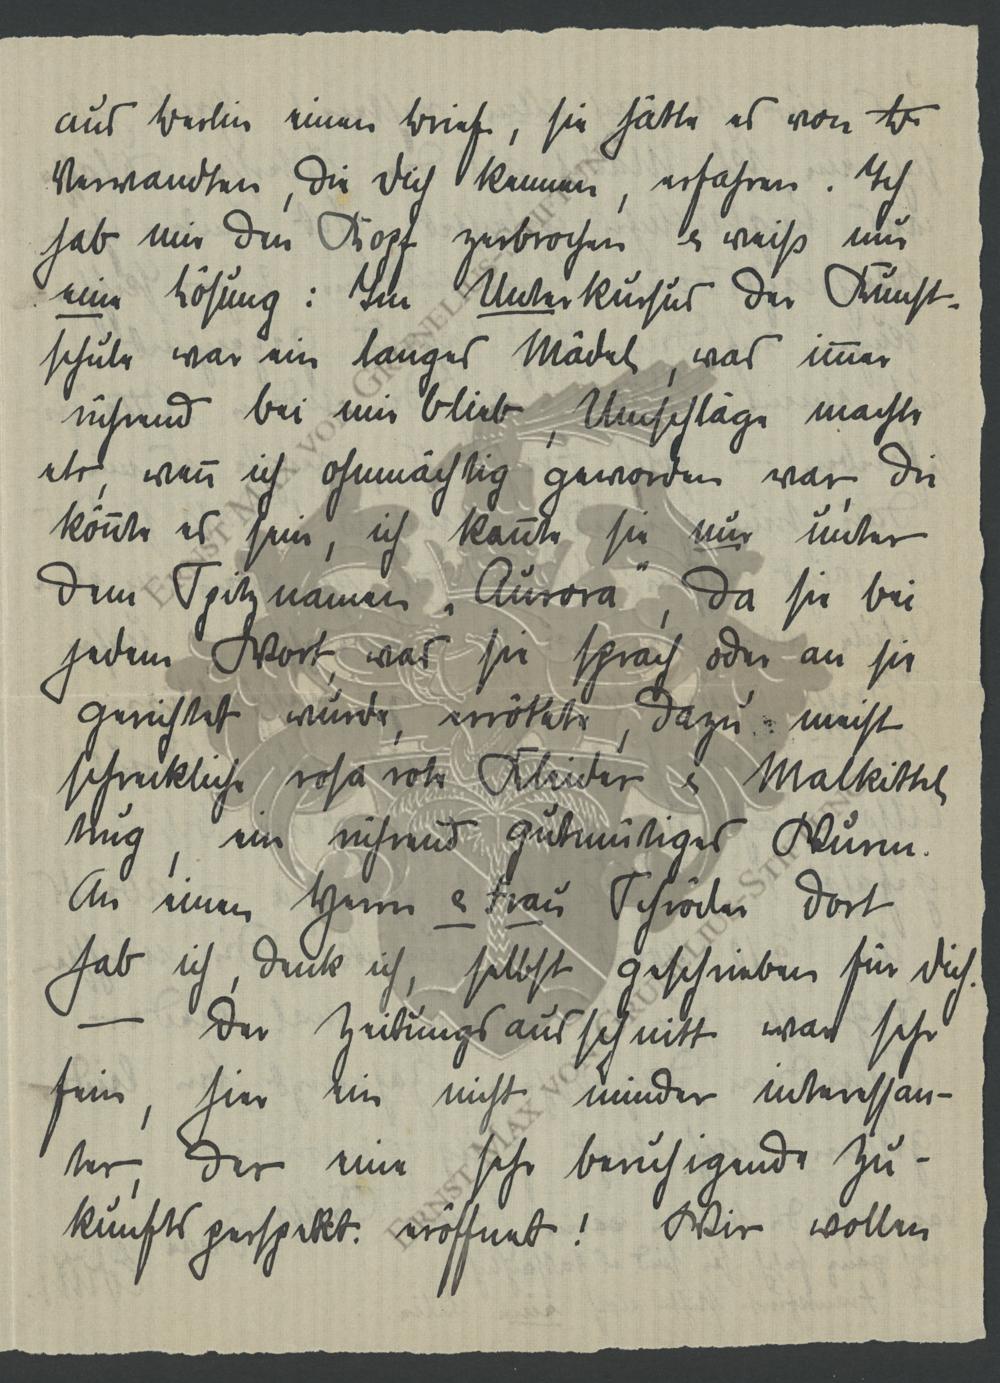 aus Berlin einen Brief, sie hätte es von
Verwandten, die Dich kennen, erfahren. Ich
hab mir den Kopf zerbrochen & weiß nur
eine Lösung: Im Unterkursus der Kunst-
schule war ein langes Mädel, was im̄er
rührend bei mir blieb, Umschläge machte
etc, wen̄ ich ohnmächtig geworden war, die
kön̄te es sein, ich kan̄te sie nur unter
dem Spitznamen „Aurora", da sie bei
jedem Wort, was sie sprach oder an sie
gerichtet wurde, errötete, dazu meist
schreckliche rosa rote Kleider & Malkittel
trug, ein rührend gutmütiges Wurm.
An einen Herrn & Frau Schröder dort
hab ich, denk ich, selbst geschrieben für Dich.
— Der Zeitungsausschnitt war sehr
fein, hier ein nicht minder interessan-
ter, der eine sehr beruhigende Zu-
kunftsperspekt. eröffnet! Wir wollen
ERNST MAX VON GRUNELIUS-STIFTUNG
ERNST MAX VON GRUNELIUS-STIFTUNG